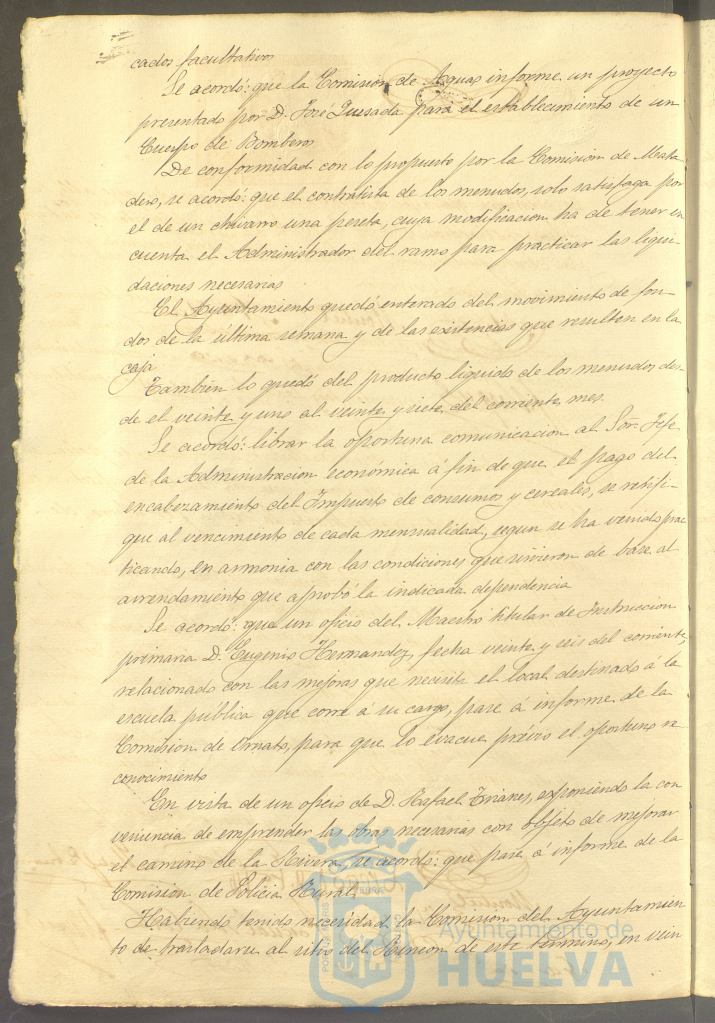 cados facultativos
Se acordó: que la Comision de Aguas informe un proyecto
presentado por D. José Quesada para el establecimiento de un
Cuerpo de Bomberos
De conformidad con lo propuesto por la Comision de Mata
dero, se acordó: que el contratista de los menudos, solo satisfaga por
el de un chivarro una peseta, cuya modificacion ha de tener en
cuenta el Administrador del ramo para practicar las liqui
daciones necesarias
El Ayuntamiento quedó enterado del movimiento de fon-
dos de la última semana y de las existencias que resultan en la
caja
Tambien lo quedó del producto líquido de los menudos des-
de el veinte y uno al veinte y siete del corriente mes.
Se acordó: librar la oportuna comunicacion al Sor. Jefe
de la Administracion económica á fin de que el pago del
encabezamiento del Impuesto de consumos y cereales, se
que al vencimiento de cada mensualidad, segun se ha venido prac
ticando, en armonia con las condiciones que sirvieron de base al
arrendamiento que aprobó la indicada dependencia
Se acordó: que un oficio del Maestro titular de Instruccion
primaria D. Eugenio Hernandez, fecha veinte y seis del corriente,
relacionado con las mejoras que necesita el local destinado á la
escuela pública que corre á su cargo, pase á informe de la
Comision de Ornato, para que lo evacue prévio el oportuno re
conocimiento
En vista de un oficio de D. Rafael exponiendo la con
veniencia de emprender las obras necesarias con objeto de mejorar
el camino de la Rivera, se acordó: que pase á informe de la
Comision de Policia Rural.
Habiendo tenido necesidad la Comision del Ayuntamien
to de trasladarse al sitio del Rincon de este término, en vein
Ayuntamiento de
HUELVA